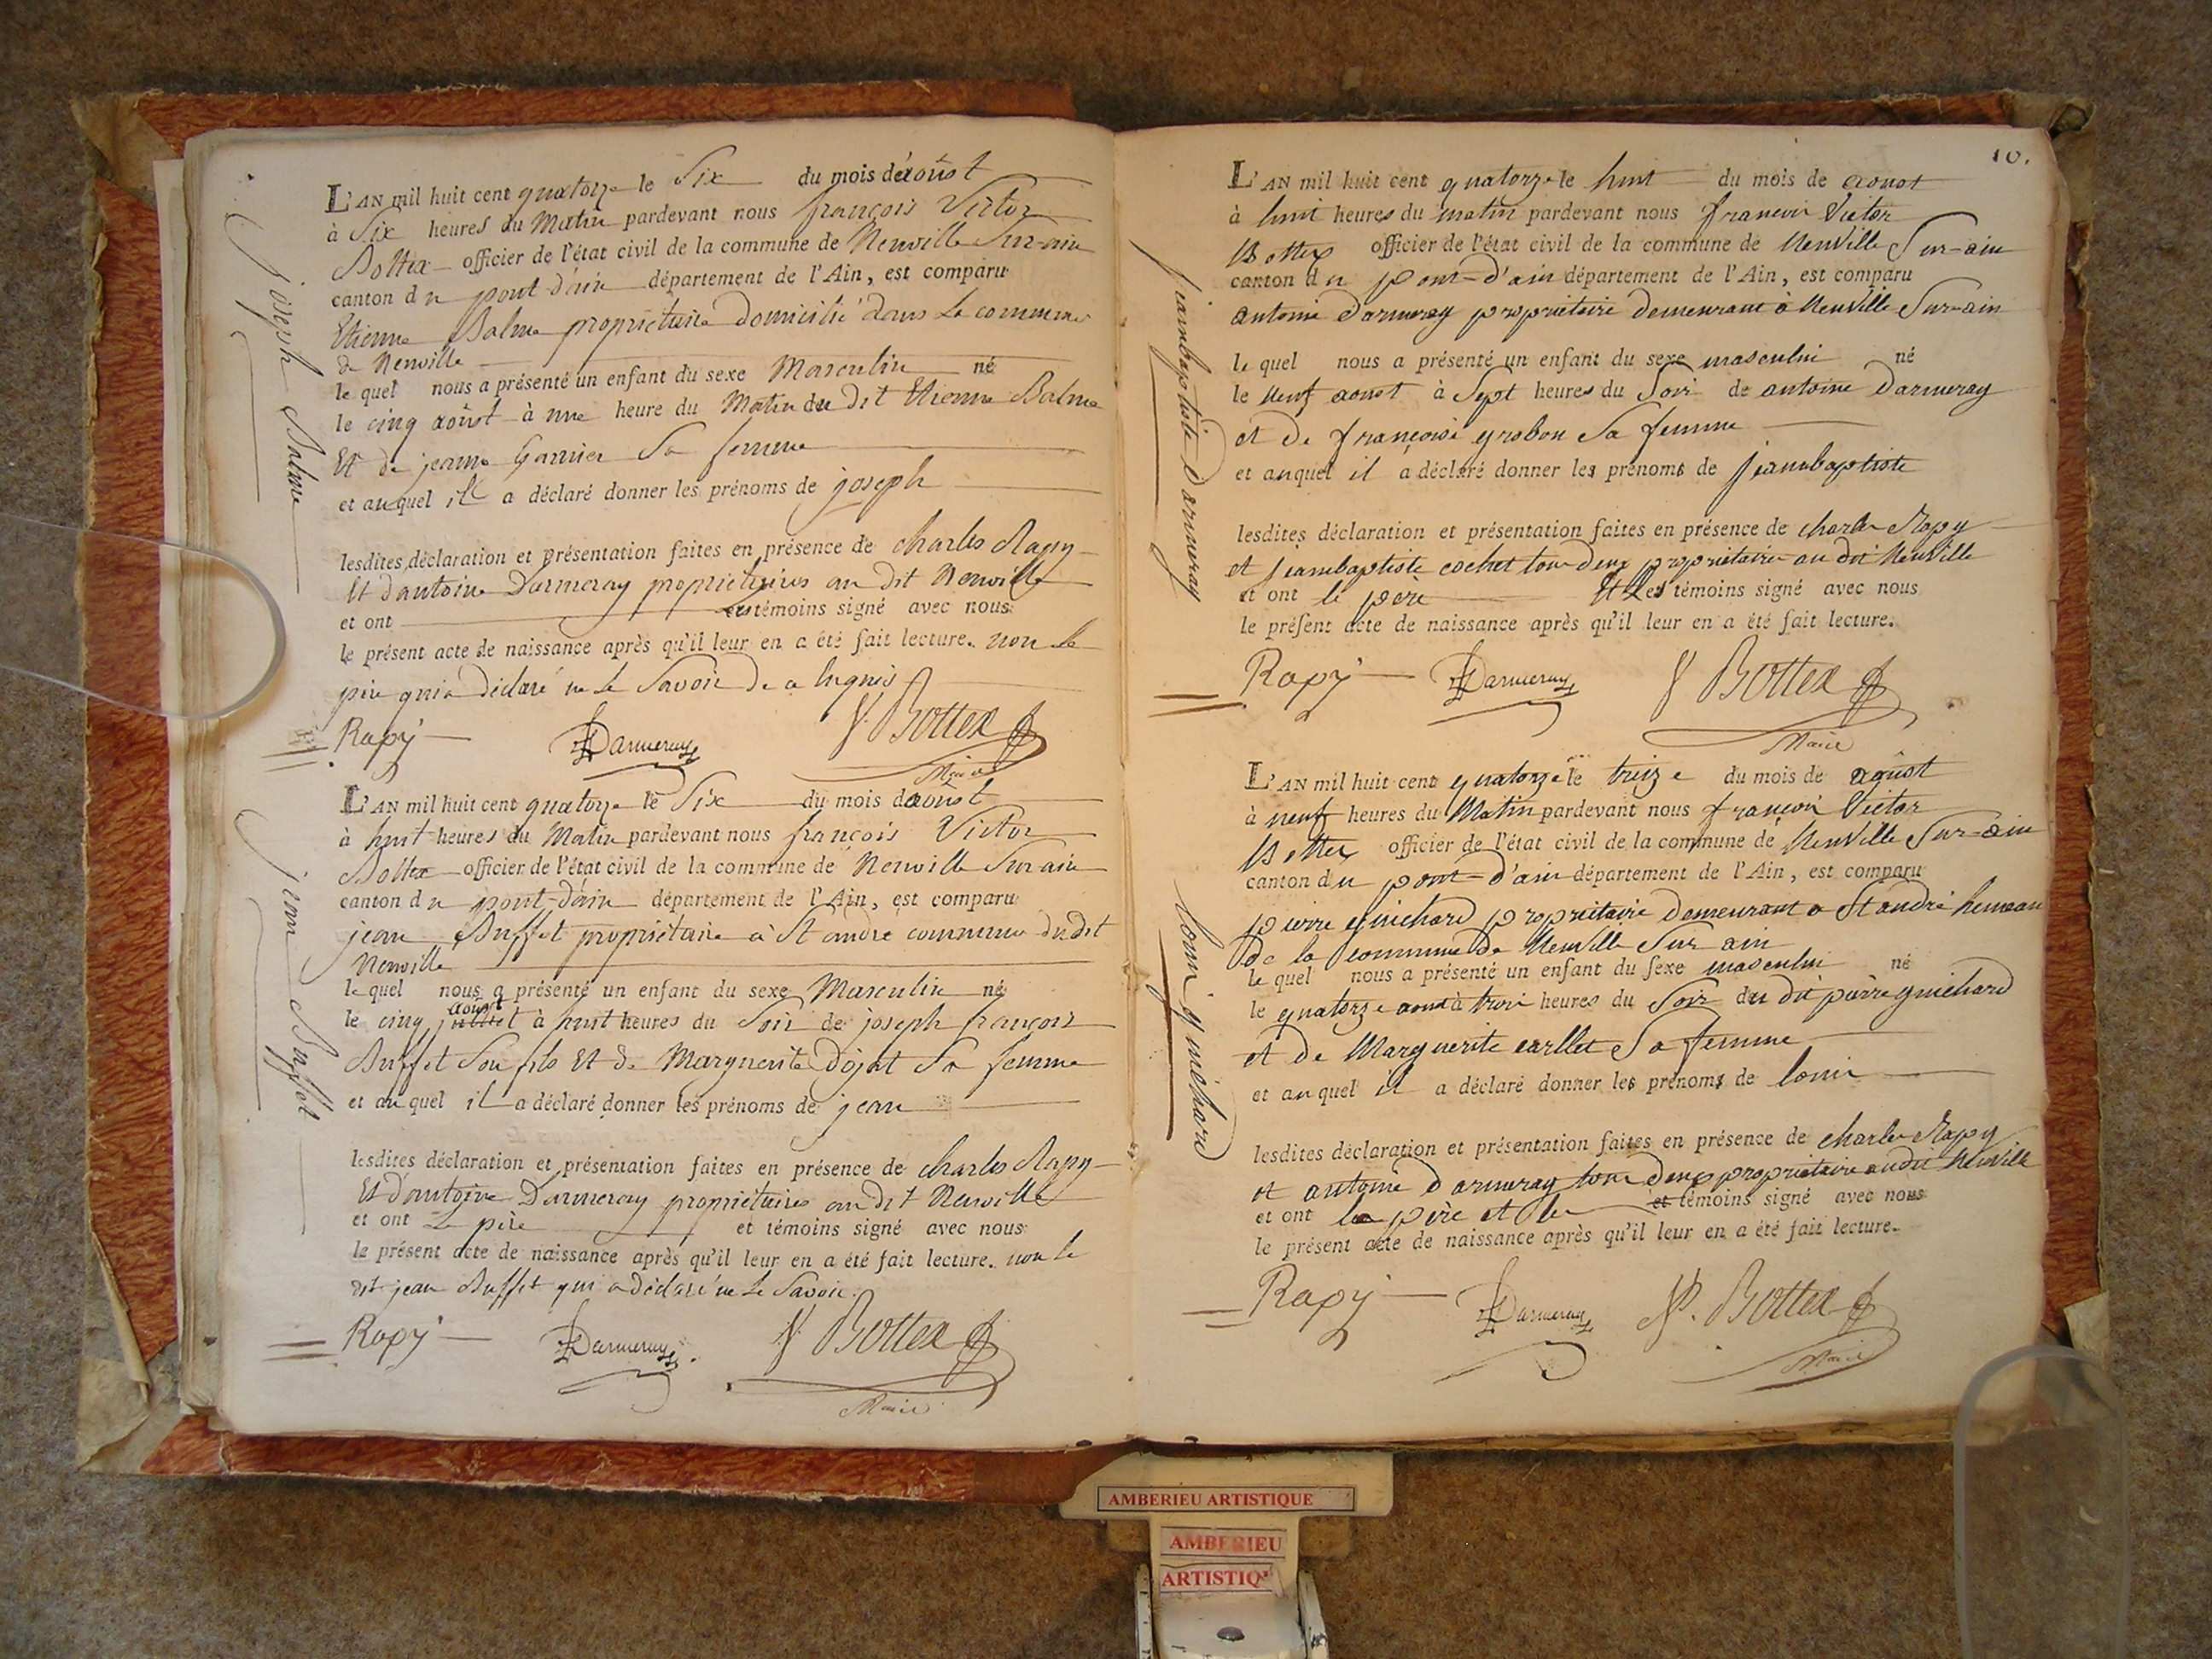 joseph Balme
L'AN mil huit cent quatorze le Six du mois d'aoûst
à Six heures du Matin pardevant nous françois Victor
Bottex officier de l'état civil de la commune de Neuville Sur-ain
canton du pont-d'ain département de l'Ain, est comparu
Etienne Balme propriétaire domicilié dans la commune
de Neuville
le quel nous a présenté un enfant du sexe Masculin né
le cinq aoûst à une heure du Matin du dit Etienne Balme
Et de jeanne Garnier Sa femme
et auquel il a déclaré donner les prénoms de joseph
lesdites déclaration et présentation faites en présence de charles Rapy
Et d'antoine Darmeray propriétaires au dit Neuville
et ont les témoins signé avec nous
le présent acte de naissance après qu'il leur en a été fait lecture. non le
père qui a déclaré ne le Savoir de a lequis
Rapy Darmeray V. Bottex
Maire
jean Buffet
L'AN mil huit cent quatorze le Six du mois d'aoûst
à huit heures du Matin pardevant nous françois Victor
Bottex officier de l'état civil de la commune de Neuville Sur-ain
canton du pont-d'ain département de l'Ain, est comparu
jean Buffet propriétaire à St andré commune du dit
Neuville
le quel nous a présenté un enfant du sexe Masculin né
aoust
le cinq juillet à huit heures du Soir de joseph françois
Buffet Son fils Et de Marguerite Dojat Sa femme
et au quel il a déclaré donner les prénoms de jean
lesdites déclaration et présentation faites en présence de charles Rapy
Et d'antoine Darmeray propriétaires au dit Neuville
et ont le père et témoins signé avec nous
le présent acte de naissance après qu'il leur en a été fait lecture. non le
dit jean Buffet qui a déclaré ne le Savoir.
Rapy Darmeray V. Bottex
Maire
10.
jeanbaptiste Darmeray
L'AN mil huit cent quatorze le huit du mois de aoust
à huit heures du matin pardevant nous françois Victor
Bottex officier de l'état civil de la commune de Neuville Sur-ain
canton du pont-d'ain département de l'Ain, est comparu
antoine Darmeray propriétaire demeurant à Neuville Sur-ain
le quel nous a présenté un enfant du sexe masculin né
le neuf aoust à Sept heures du Soir de antoine Darmeray
et de françoise grobon Sa femme
et auquel il a déclaré donner les prénoms de jeanbaptiste
lesdites déclaration et présentation faites en présence de charles Rapy
et jeanbaptiste cochet tous deux propriétaires au dit Neuville
et ont le père Et Les témoins signé avec nous
le présent acte de naissance après qu'il leur en a été fait lecture.
Rapy Darmeray V. Bottex
Maire
louis guichard
L'AN mil huit cent quatorze le treize du mois de aoûst
à neuf heures du Matin pardevant nous françois Victor
Bottex officier de l'état civil de la commune de Neuville Sur-ain
canton du pont-d'ain département de l'Ain, est comparu
pierre guichard propriétaire demeurant a St andré hameau
de la commune de Neuville Sur ain
le quel nous a présenté un enfant du sexe masculin né
le quatorze aoust à trois heures du Soir du dit pierre guichard
et de Marguerite carllet Sa femme
et au quel il a déclaré donner les prénoms de louis
lesdites déclaration et présentation faites en présence de charles Rapy
et antoine Darmeray tous deux propriétaire au dit Neuville
et ont le père et les et témoins signé avec nous
le présent acte de naissance après qu'il leur en a été fait lecture.
Rapy Darmeray V. Bottex
Maire
AMBERIEU ARTISTIQUE
AMBERIEU
ARTISTIQ